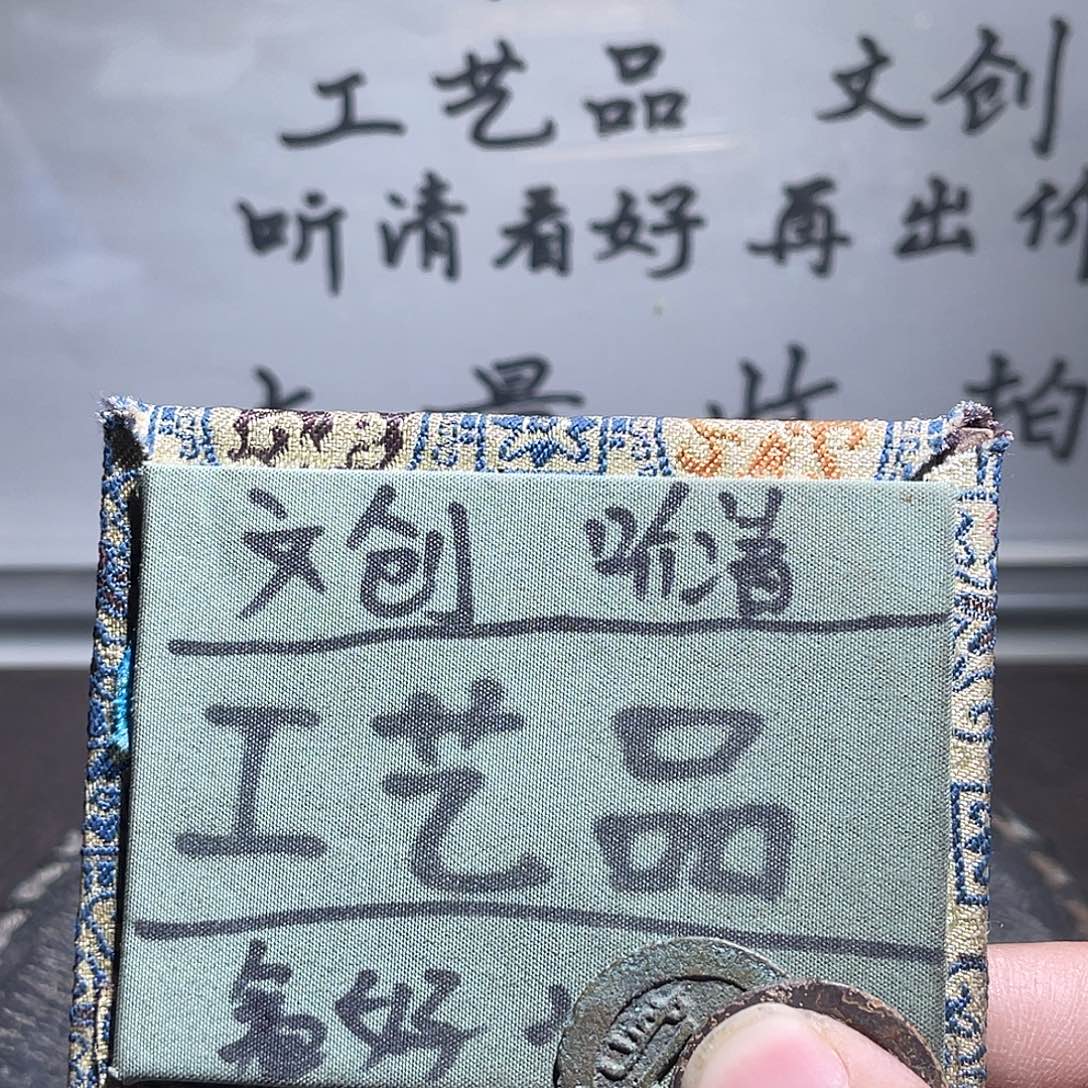 工艺品 文创
听清看好 再出价
拍
文创 听清
工艺品
看好